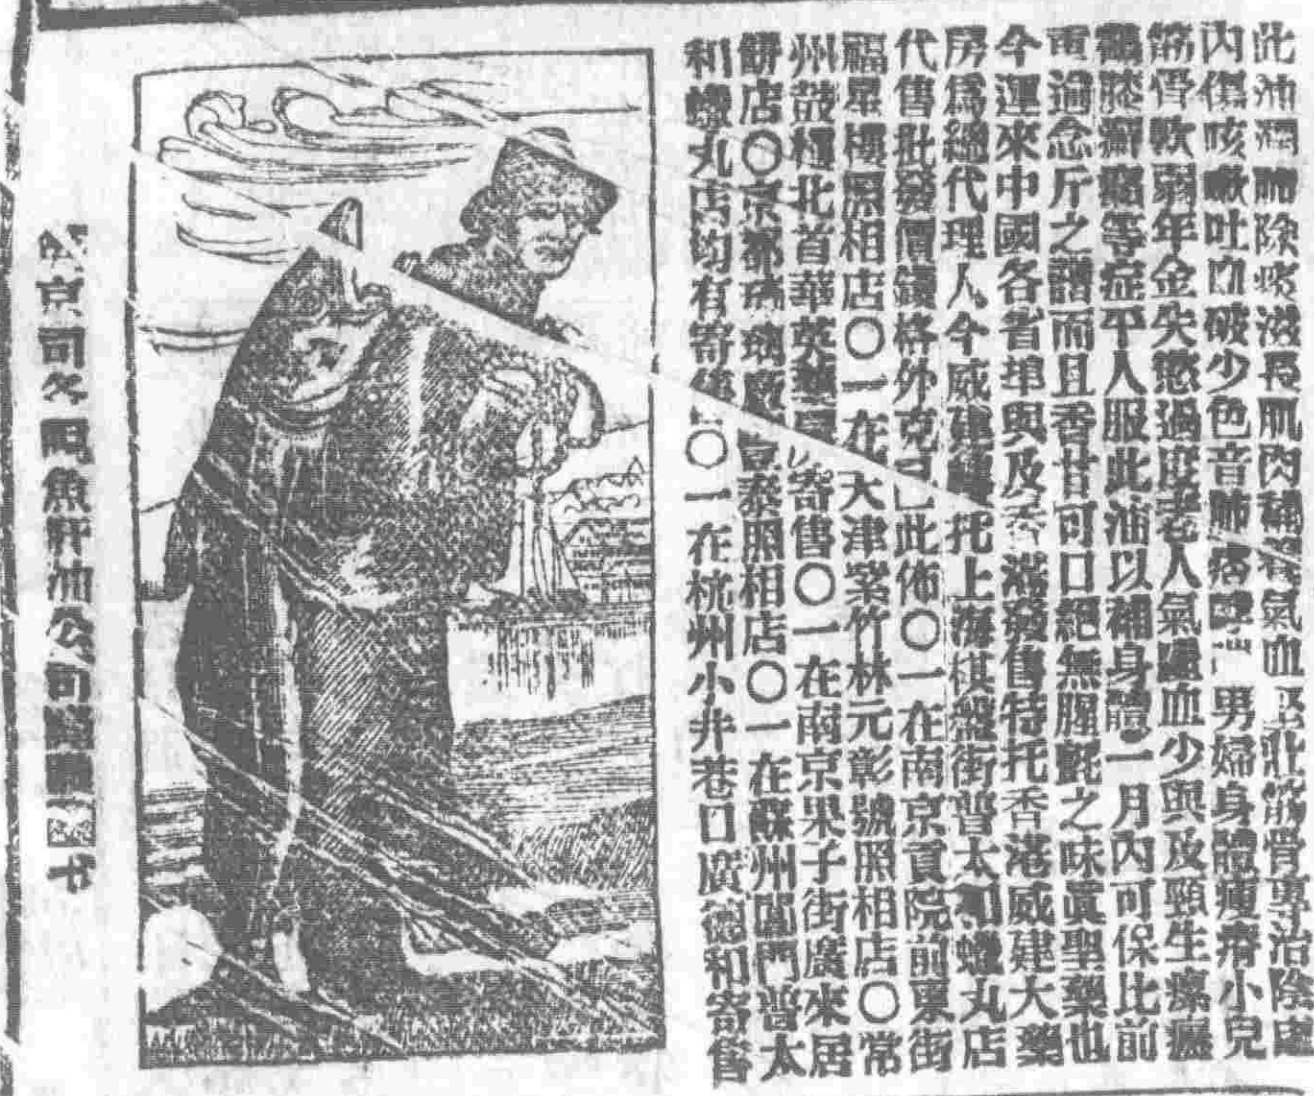 此油潤肺除痰滋長肌肉補養氣血堅壯筋骨專治陰虛
內傷咳嗽吐血破少色音肺癆 男婦身體瘦瘠小兒
筋骨軟弱年金失懲過度老人氣虛血少與及頸生瘰癧
鶴膝癬癩等症平人服此油以補身體一月內可保比前
重過念斤之譜而且香甘可口絕無腥氈之味眞聖藥也
今運來中國各省埠與及香港發售特托香港威建大藥
房爲總代理人今威建 托上海棋盤街普太和蠟丸店
代售批發價錢格外克己此佈〇一在南京貢院前東街
福星樓照相店〇一在 大津案竹林元彰號照相店〇常
州鼓樓北首華英 寄售〇一在南京果子街廣來居
餅店〇京都琉璃廠 豐泰照相店〇一在蘇州閶門普太
和蠟丸店均有寄售〇一在杭州小井巷口廣德和寄售
京司各 魚肝油公司